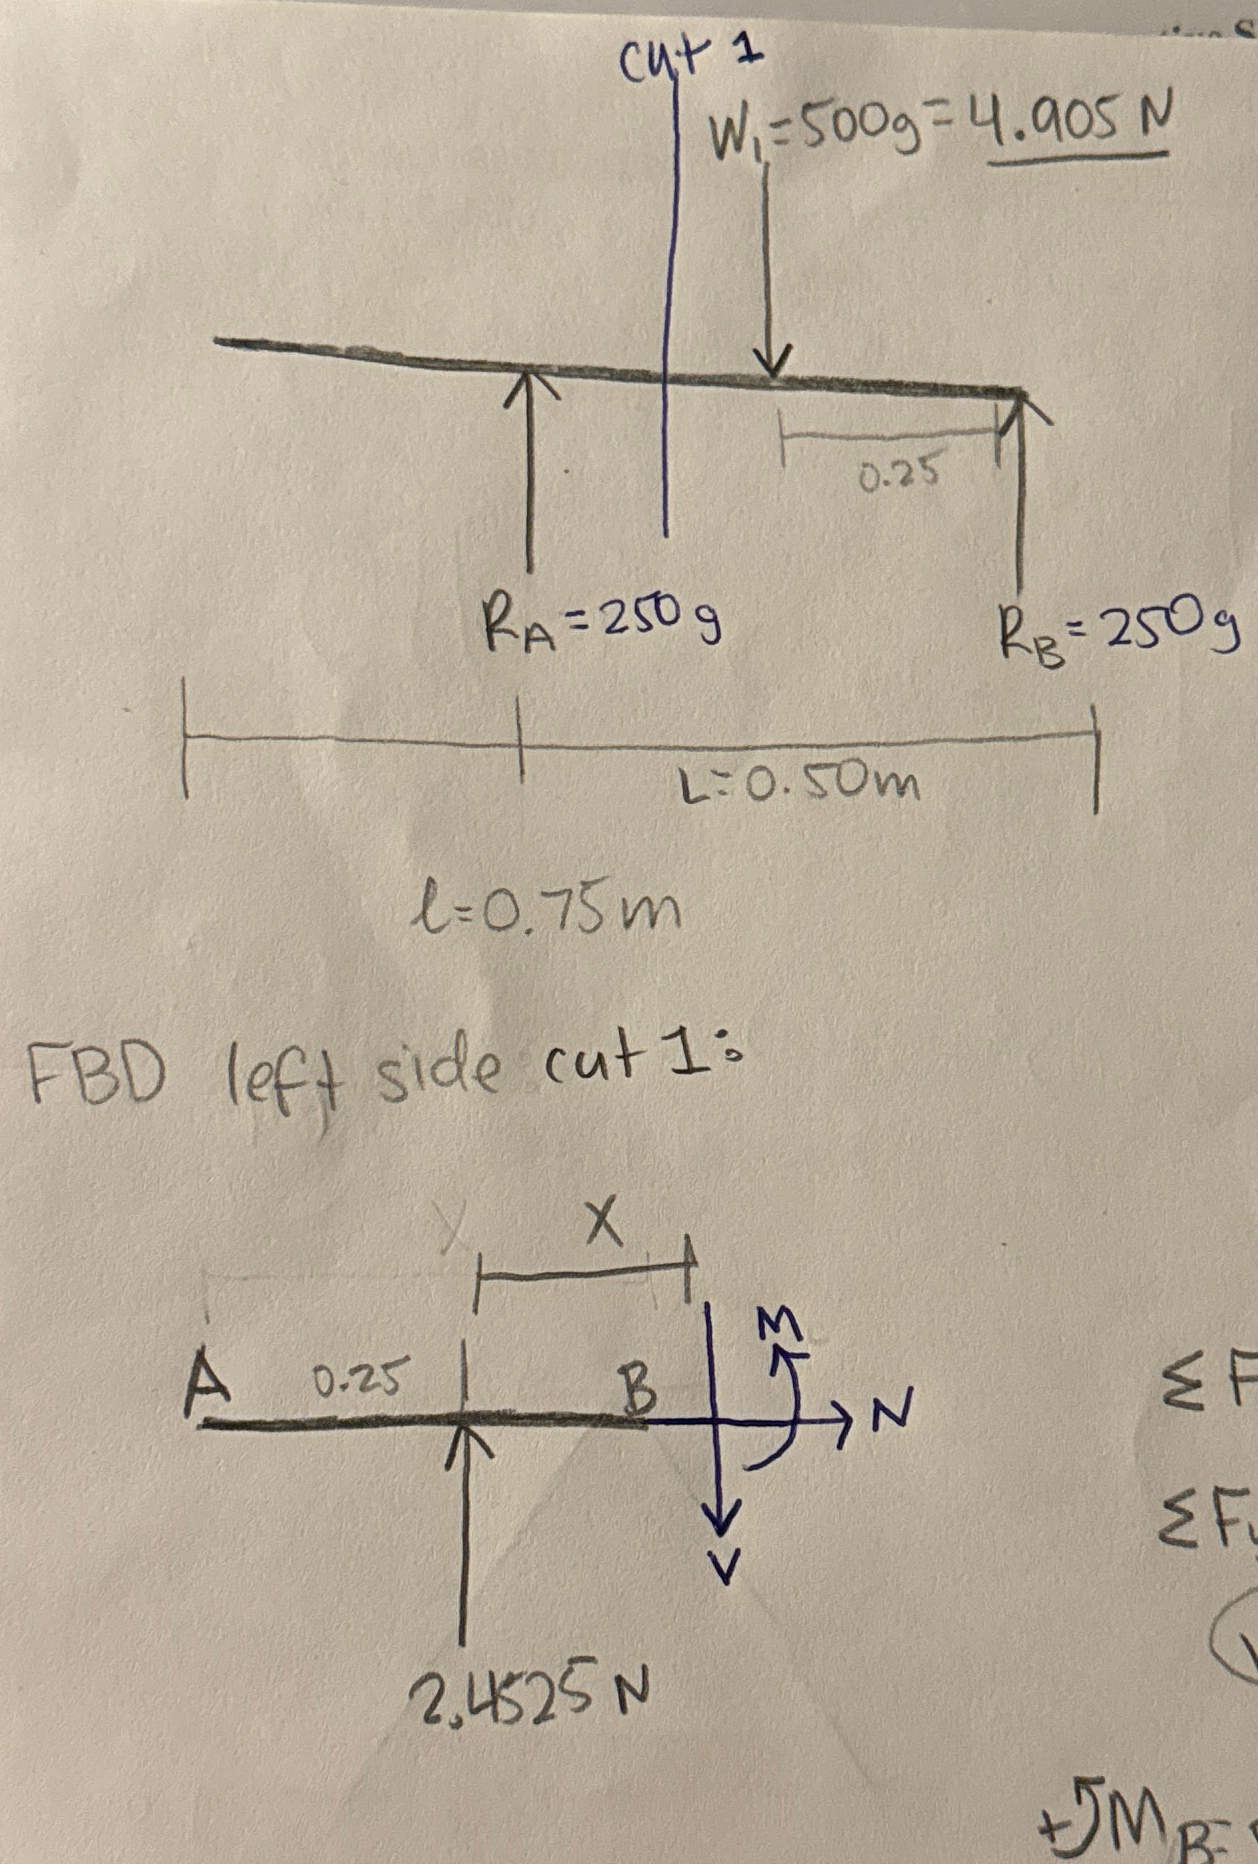 cut 1
W₁=500g=4.905 N
0.25
R_A=250g
R_B=250g
L=0.50m
l=0.75m
FBD left side cut 1:
X
X
M
A
0.25
B
N
Σ F
V
Σ F
2.4525 N
+ M_B=